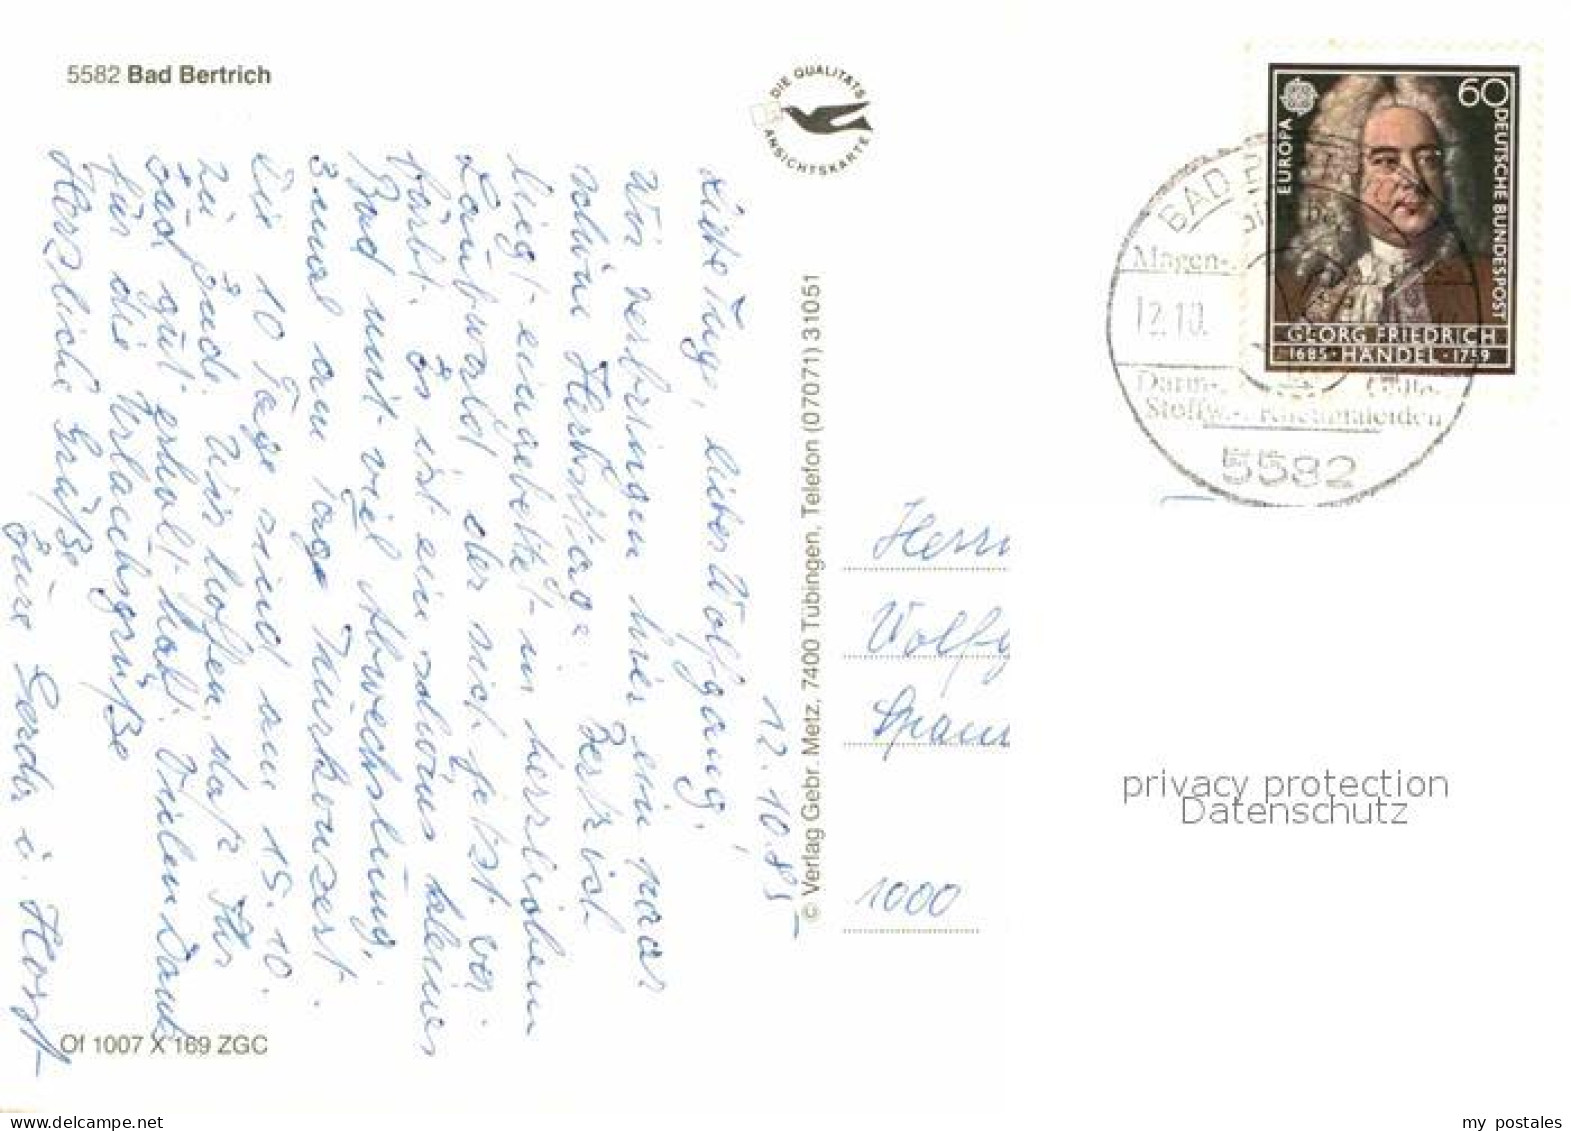 5582 Bad Bertrich
DIE QUALITÄTS
ANSICHTSKARTE
12.10.85
Liebe Inge, lieber Wolfgang,
Wir verbringen hier ein paar
schöne Herbsttage. Bertrich
liegt eingebettet in herrlichem
Laubwald, der sich jetzt ver-
färbt. Es ist ein schönes kleines
Bad mit viel Abwechslung,
3 mal am Tage Kurkonzert.
Die 10 Tage sind am 15.10.
zu Ende. Wir hoffen, daß Ihr
Euch gut erholt habt. Vielen Dank
für die Urlaubsgrüße
Herzliche Grüße
Eure Gerda u. Horst
Of 1007 X 169 ZGC
© Verlag Gebr. Metz, 7400 Tübingen, Telefon (07071) 31051
EUROPA
60
DEUTSCHE BUNDESPOST
GEORG FRIEDRICH
1685 · HÄNDEL · 1759
BAD
Magen-
12.10.
Darm-
Stoffw.-
5582
Herrn
Wolfg
Span
1000
privacy protection
Datenschutz
my postales